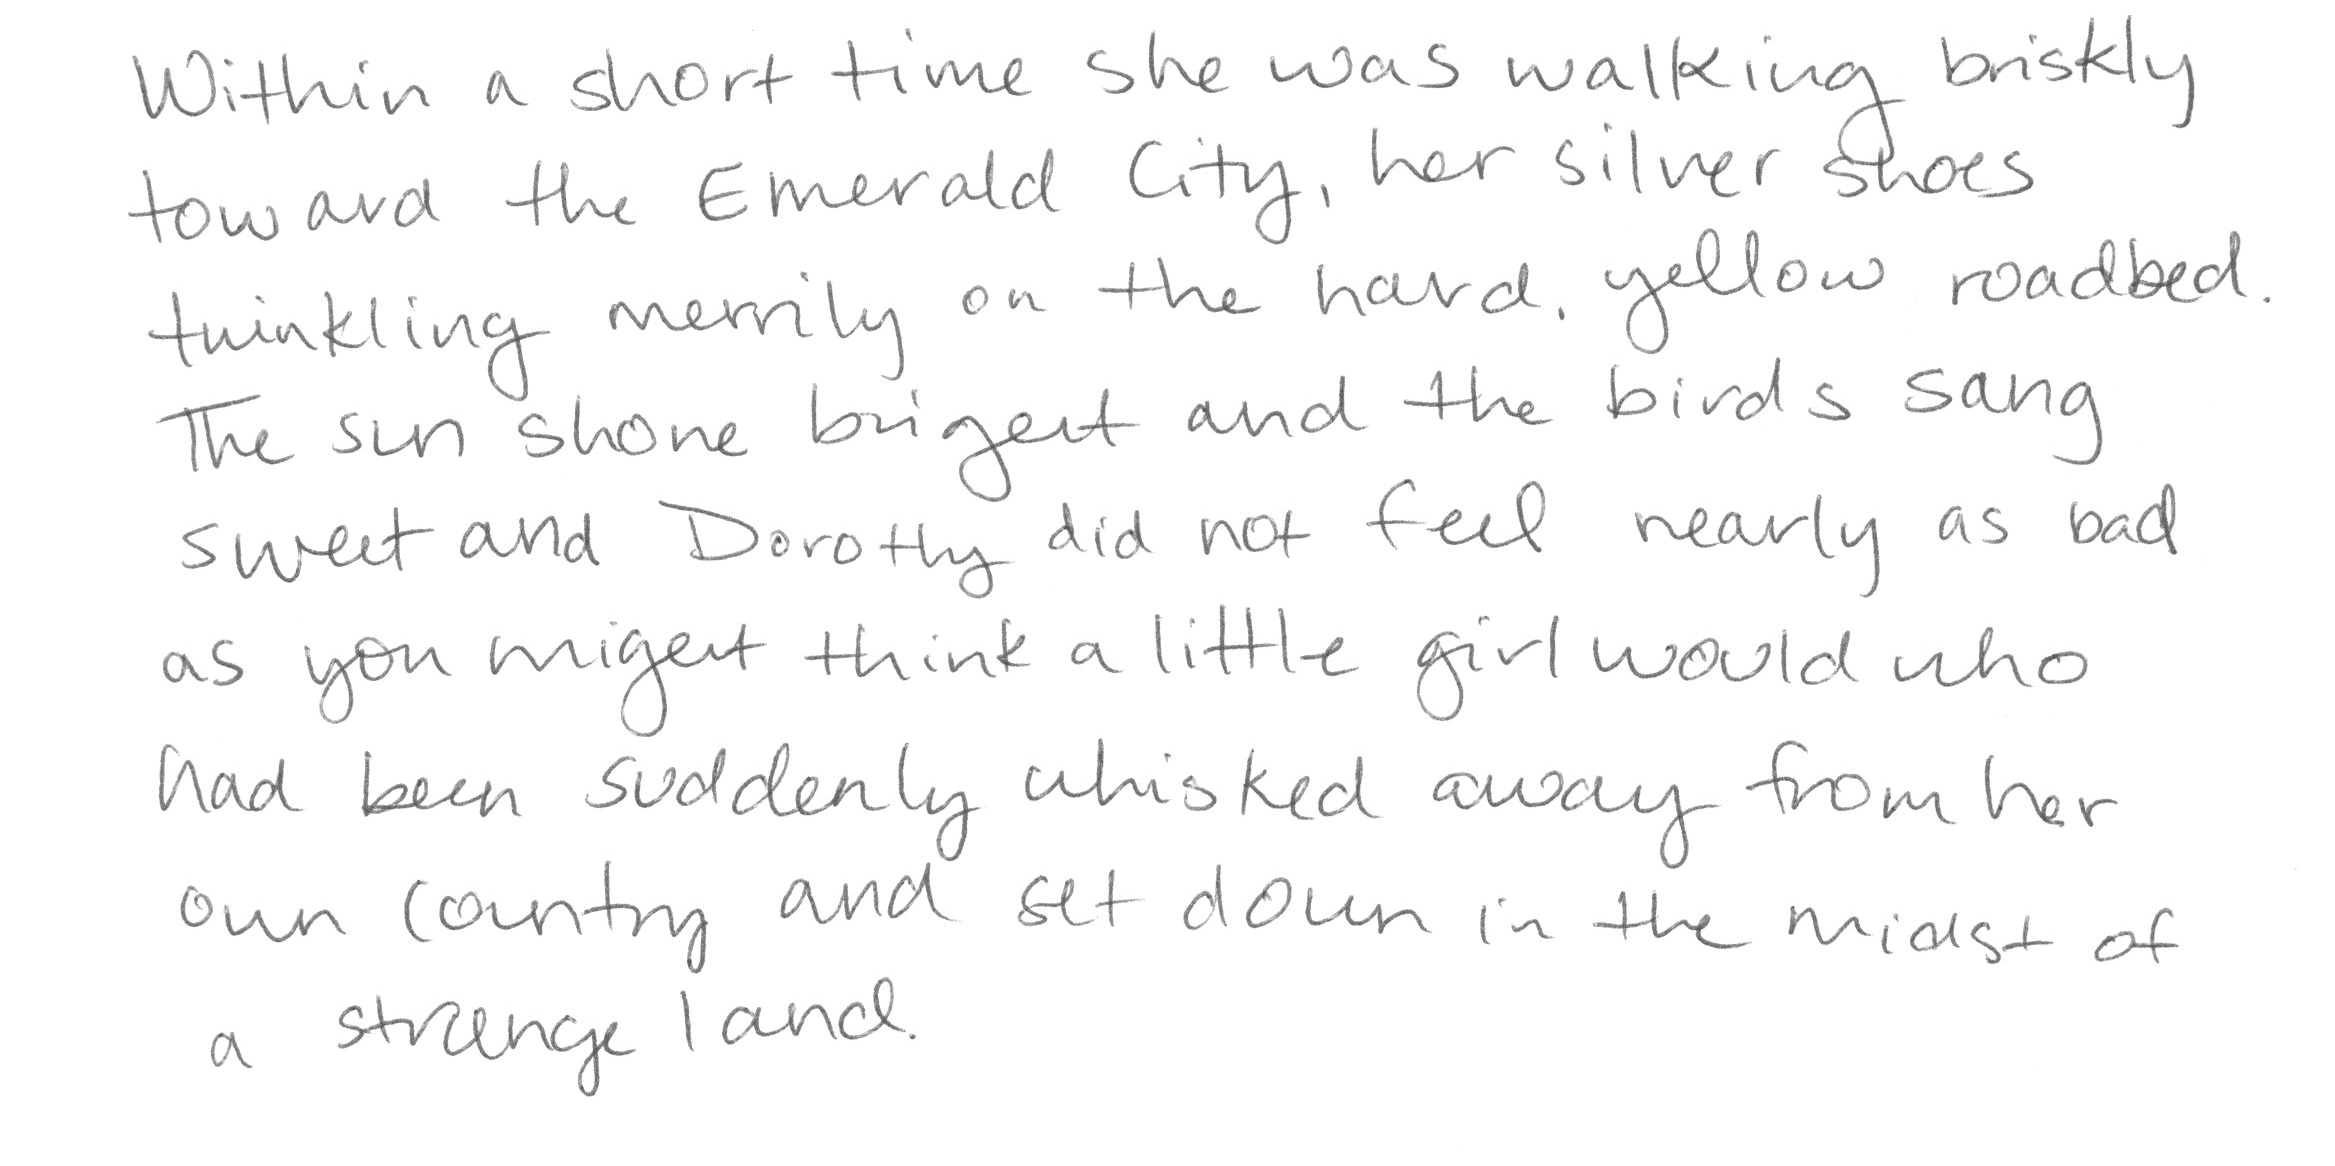 Within a short time she was walking briskly
toward the Emerald City, her silver shoes
twinkling merrily on the hard, yellow roadbed.
The sun shone bright and the birds sang
sweet and Dorothy did not feel nearly as bad
as you might think a little girl would who
had been suddenly whisked away from her
own country and set down in the midst of
a strange land.